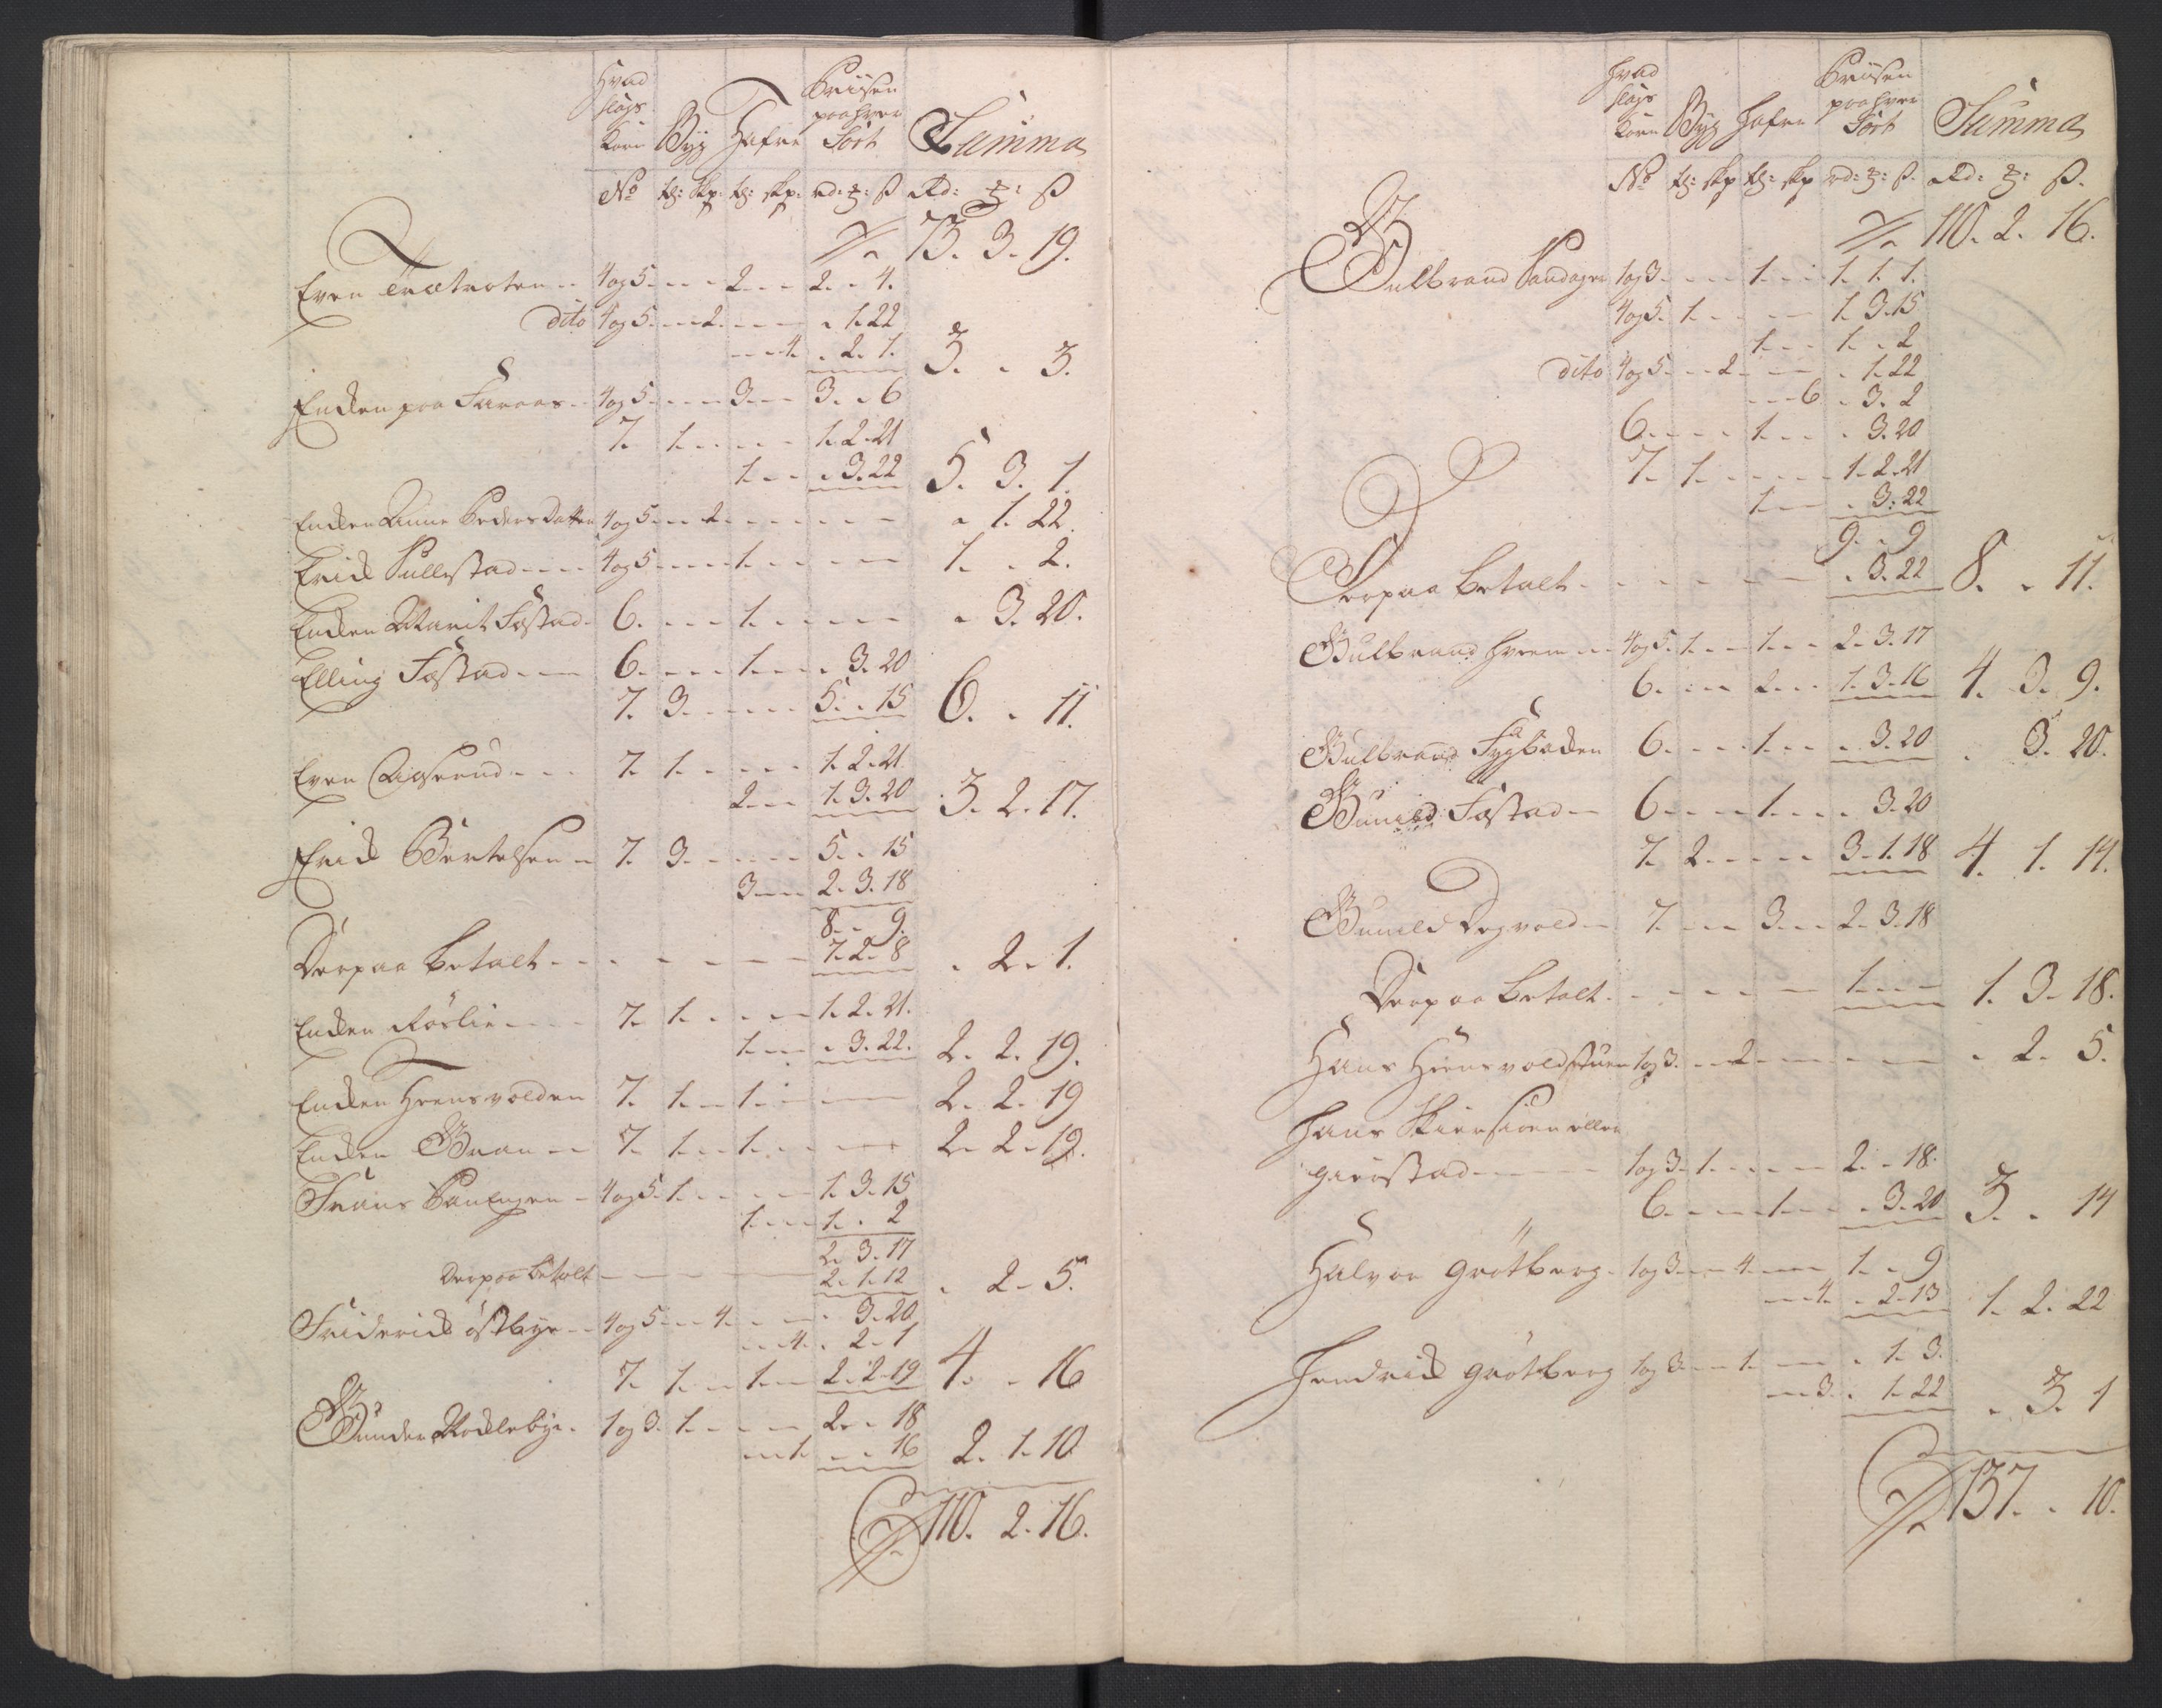 Hvad slags Korn | Byg | Hafre | Prisen paa hver Sort | Summa
No | td: skp: | td: skp: | rd: ß | Rd: ß
73. 3. 19.
Even Trætroten 4 og 5. 2. 2. . 4.
dito 4 og 5. 2. . 1. 22
4. . 2. 1. 3. . 3.
Enken paa Faraas 4 og 5. 3. 3. . 6
7. 1. 1. 2. 21
1. . 3. 22 5. 3. 1.
Enken Anne Peders Datter 4 og 5. 2. . 1. 22.
Erick Sullestad 4 og 5. 1. 1. . 2.
Enken Marit Fostad 6. 1. . 3. 20.
Elling Fostad 6. 1. . 3. 20
7. 3. 5. . 15 6. . 11.
Even 7. 1. 1. 2. 21
2. 1. 3. 20 3. 2. 17.
Erick Bertelsen 7. 3. 5. . 15
3. 2. 3. 18
8. . 9.
Derpaa betalt 7. 2. 8 . 2. 1.
Enken Røslie 7. 1. 1. 2. 21.
1. . 3. 22. 2. 2. 19.
Enken Hrensvolden 7. 1. 1. 2. 2. 19
Enken Gran 7. 1. 1. 2. 2. 19.
Frans Sanengen 4 og 5. 1. 1. 3. 15
1. 1. . 2
2. 3. 17
Derpaa betalt 2. 1. 12 . 2. 5.
Friderick østbye 4 og 5. 4. . 3. 20
4. . 2. 1
7. 1. 1. 2. 2. 19 4. . 16
Gunder Moklebye 1 og 3. 1. 2. . 18
1. . . 16 2. 1. 10
110. 2. 16.
Hvad slags Korn | Byg | Hafre | Prisen paa hver Sort | Summa
No | td: skp | td: skp | rd: ß. | Rd: ß.
110. 2. 16.
Gulbrand Sandager 1 og 3. 1. 1. 1. 1.
4 og 5. 1. 1. 3. 15
1. 1. . 2
dito 4 og 5. 2. . 1. 22
6 . 3. 2
6. 1. . 3. 20
7. 1. 1. 2. 21
1. . 3. 22
9. . 9
Derpaa betalt . 3. 22 8. . 11.
Gulbrand Hvem 4 og 5. 1. 1. 2. 3. 17
6. 2. 1. 3. 16 4. 3. 9.
Gulbrand Fygbakken 6. 1. . 3. 20 . 3. 20.
Gunild Fostad 6. 1. . 3. 20
7. 2. 3. 1. 18 4. 1. 14.
Gunild Degvold 7. 3. 2. 3. 18
Derpaa betalt 1. 1. 3. 18.
Hans Hrensvoldstuen 1 og 3. 2. . 2. 5.
Hans Skiersioen eller
gierstad 1 og 3. 1. 2. . 18.
6. 1. . 3. 20 3. . 14
Halvor Grøtberg 1 og 3. 4. 1. . 9
4. . 2. 13 1. 2. 22
Hendrick grøtberg 1 og 3. 1. . 1. 3.
3. . 1. 22 . 3. 1
137. . 10.